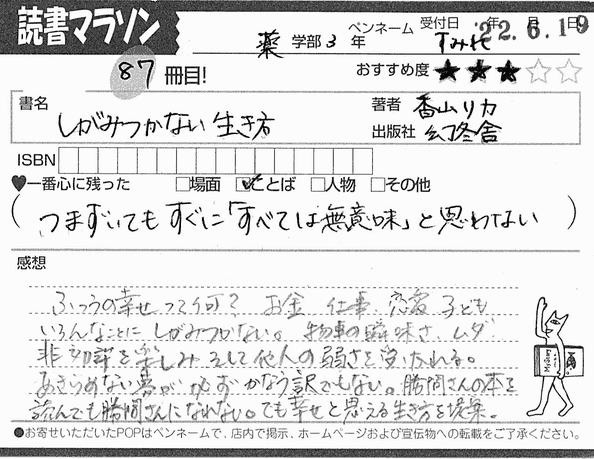 読書マラソン
87冊目!
薬 学部 3 年
ペンネーム すみれ
受付日 '22.6.19 年 月 日
おすすめ度 ★★★☆☆
書名 しがみつかない生き方
著者 香山リカ
出版社 幻冬舎
ISBN
♥一番心に残った □場面 ☑ことば □人物 □その他
(つまずいてもすぐに「すべては無意味」と思わない)
感想
ふつうの幸せって何? お金 仕事 恋愛 子ども
いろんなことにしがみつかない。物事の曖昧さ、ムダ、
非効率を楽しみ そして他人の弱さを受け入れる。
あきらめない夢が必ずかなう訳でもない。勝間さんの本を
読んでも勝間さんになれない。でも幸せと思える生き方を提案。
●お寄せいただいたPOPはペンネームで、店内で掲示、ホームページおよび宣伝物への転載をご了承ください。